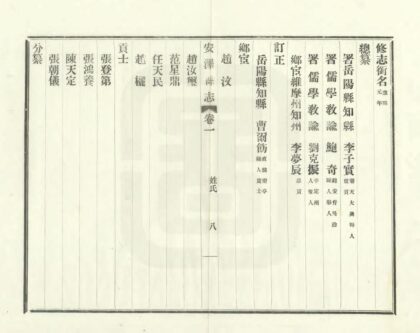 修志銜名
總纂
署岳陽縣知縣 李子實
署儒學教諭 鮑奇
署儒學教諭 劉克振
鄉宦維摩州知州 李夢辰
訂正
岳陽縣知縣 曹爾勛
鄉宦
趙汶
安澤縣志 卷一 姓氏 八
趙汝璽
范星鼎
任天民
趙纚
貢士
張登第
張鴻養
陳天定
張朝儀
分纂